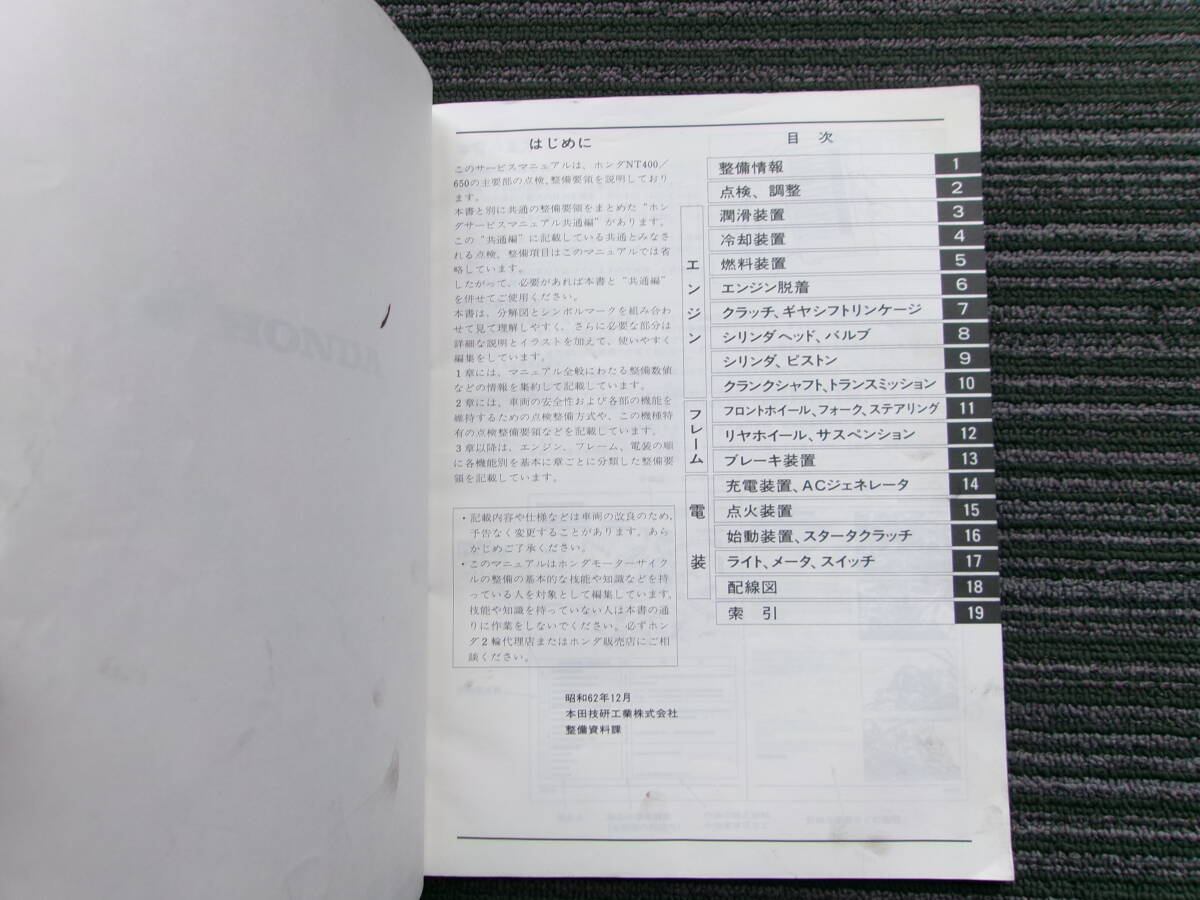 はじめに
このサービスマニュアルは、ホンダNT400／
650の主要部の点検、整備要領を説明しており
ます。
本書と別に共通の整備要領をまとめた“ホン
ダサービスマニュアル共通編”があります。
この“共通編”に記載している共通とみなさ
れる点検、整備項目はこのマニュアルでは省
略しています。
したがって、必要があれば本書と“共通編”
を併せてご使用ください。
本書は、分解図とシンボルマークを組み合わ
せて見て理解しやすく、さらに必要な部分は
詳細な説明とイラストを加えて、使いやすく
編集をしています。
1章には、マニュアル全般にわたる整備数値
などの情報を集約して記載しています。
2章には、車両の安全性および各部の機能を
維持するための点検整備方式や、この機種特
有の点検整備要領などを記載しています。
3章以降は、エンジン、フレーム、電装の順
に各機能別を基本に章ごとに分類した整備要
領を記載しています。
・記載内容や仕様などは車両の改良のため、
予告なく変更することがあります。あら
かじめご了承ください。
・このマニュアルはホンダモーターサイク
ルの整備の基本的な技能や知識などを持
っている人を対象として編集しています。
技能や知識を持っていない人は本書の通
りに作業をしないでください。必ずホン
ダ2輪代理店またはホンダ販売店にご相
談ください。
昭和62年12月
本田技研工業株式会社
整備資料課
目次
整備情報 1
点検、調整 2
エンジン
潤滑装置 3
冷却装置 4
燃料装置 5
エンジン脱着 6
クラッチ、ギヤシフトリンケージ 7
シリンダヘッド、バルブ 8
シリンダ、ピストン 9
クランクシャフト、トランスミッション 10
フレーム
フロントホイール、フォーク、ステアリング 11
リヤホイール、サスペンション 12
ブレーキ装置 13
電装
充電装置、ACジェネレータ 14
点火装置 15
始動装置、スタータクラッチ 16
ライト、メータ、スイッチ 17
配線図 18
索引 19